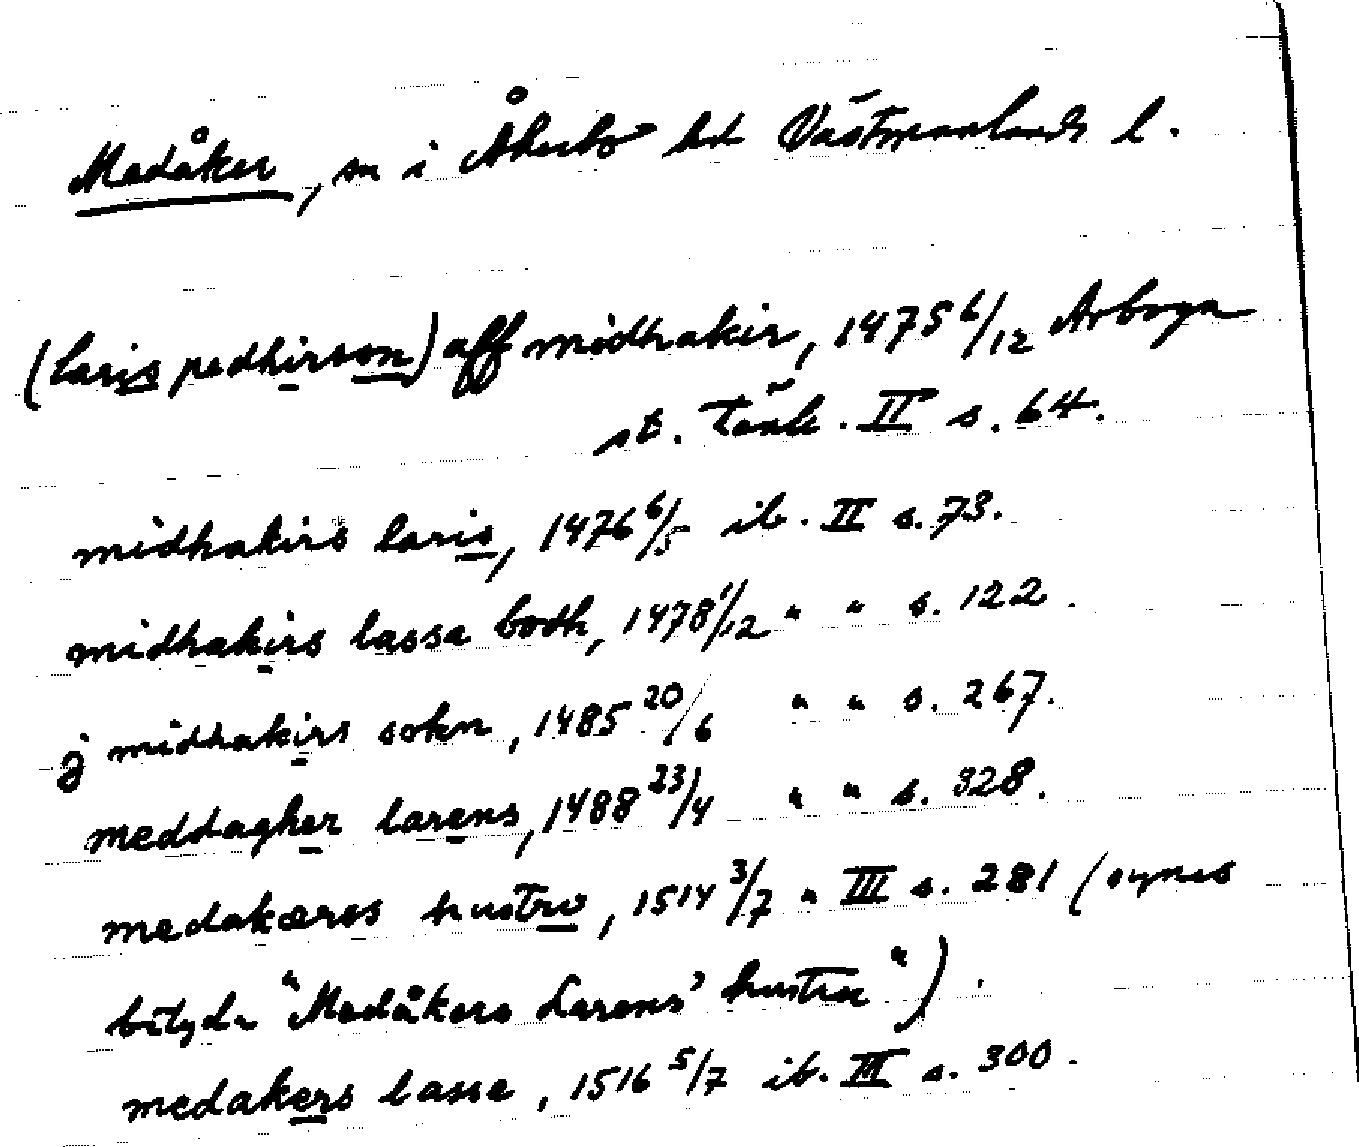 Medåker, sn i Åkerbo hd Västmanlands l.
(laris pedhirson) aff midhakir, 1475 6/12 Arboga
st. Tänk. II s. 64.
midhakirs laris, 1476 6/5 ib. II s. 73.
midhakirs lassa bodh, 1478 1/12 " " s. 122.
j midhakirs sokn, 1485 20/6 " " s. 267.
meddagher larens, 1488 23/4 " " s. 328.
medakæres hustrv, 1514 3/7 " III s. 281 (synes
betyda "Medåkers Larens' hustru").
medakers lasse, 1516 5/7 ib. III s. 300.